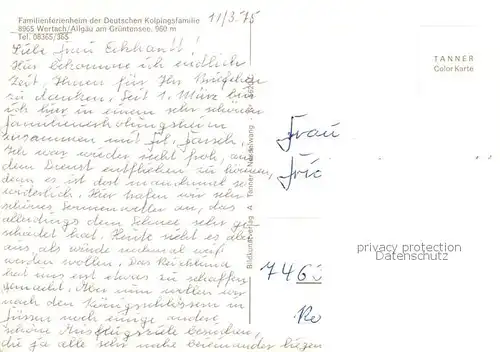 Familienferienheim der Deutschen Kolpingsfamilie
8965 Wertach/Allgäu am Grüntensee. 960 m
Tel. 08365/365
11/3.75
Liebe Frau Eckhardt!
Hier bekomme ich endlich
Zeit, Ihnen für Ihr Brieflein
zu danken. Seit 1. März bin
ich hier in einem sehr schönen
Familienerholungsheim
zusammen mit Frl.
Ich war wieder recht froh, aus
dem Dienst entfliehen zu können,
denn es ist dort manchmal so
widerlich. Hier hatten wir sehr
schönes Sonnenwetter an, das
allerdings dem Schnee sehr ge-
schadet hat. Heute sieht es aber
aus als würde nochmal weiß
werden wollen. Das Reizklima
hat uns erst etwas zu schaffen
gemacht. Aber nun wollen wir
nach den Königsschlössern in
Füssen noch einige andere
schöne Ausflugsziele besuchen,
die ja alle sehr nahe beieinander liegen
Bildkunstverlag A. Tanner Nesselwang
TANNER
Color Karte
Frau
746
privacy protection
Datenschutz